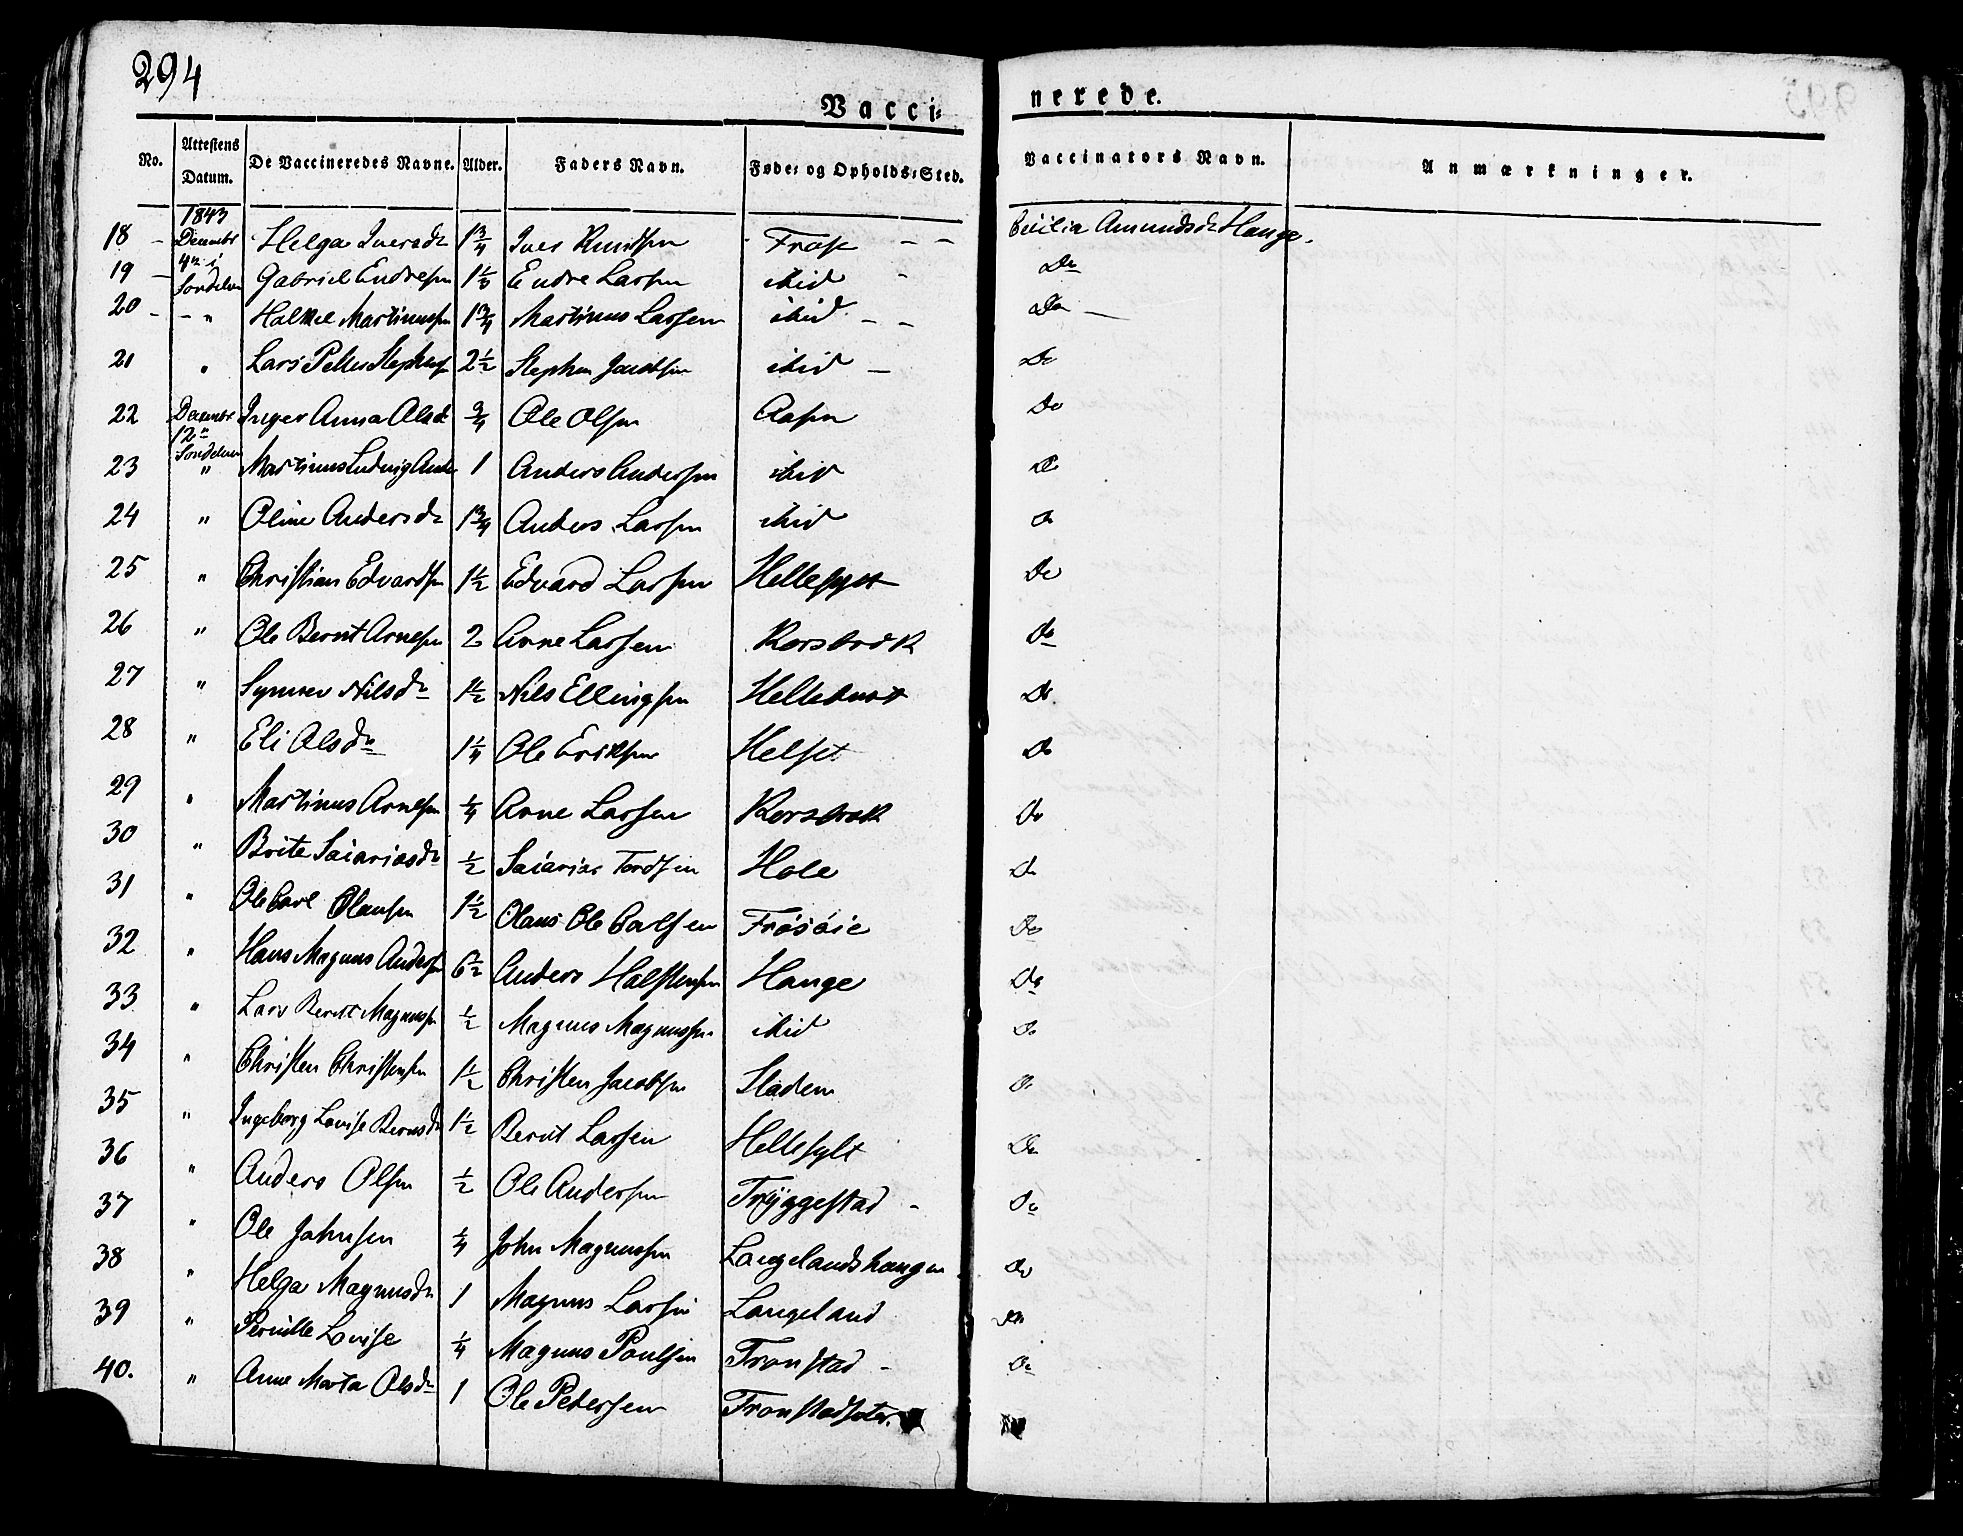 294
Vacci- nerede.
No. Attestens Datum. De Vaccineredes Navne. Alder. Faders Navn. Føde- og Opholds-Sted. Vaccinators Navn. Anmærkninger.
1843
18 Decembr 4de i Sondelven Helga Iversdr 1 3/4 Iver Knudsen Cecilia Amundsdr Hauge.
19 Gabriel Endresen Endre Larsen ibid Do
20 " Martinussen 1 3/4 Martinus Larsen ibid Do
21 " Lars Petter Stephens 2 1/2 Stephen Jacobsen ibid Do
22 Decembr 12te Sondelven Inger Anna Olsdr 3/4 Ole Olsen Aasen Do
23 " Martinus Ludvig Anders 1 Anders Andersen ibid Do
24 " Oline Andersdr 1 3/4 Anders Larsen ibid Do
25 " Christian Edvardsen 1 1/2 Edvard Larsen Hellesylt Do
26 " Ole Bernt Arnesen 2 Arne Larsen Korsbrek Do
27 " Synnev Nilsdr 1 1/2 Nils Ellingsen Hellebust Do
28 " Eli Olsdr 1 1/4 Ole Eriksen Helset Do
29 " Martinus Arnesen 1/4 Arne Larsen Korsbrek Do
30 " Brite Saiariasdr 1/2 Saiarias Tordsen Hole Do
31 " Ole Carl Olausen 1 1/2 Olaus Ole Carlsen Frøsøie Do
32 " Hans Magnus Andersen 6 1/2 Anders Halstensen Hauge Do
33 " Lars Berndt Magnussen 1/2 Magnus Magnussen ibid Do
34 " Christen Christensen 1 1/2 Christen Jacobsen Staden Do
35 " Ingeborg Lovise Berntsdr 1 1/2 Bernt Larsen Hellesylt Do
36 " Anders Olsen 1/2 Ole Andersen Tryggestad Do
37 " Ole Johnsen 1/4 John Magnussen Langelandshaugen Do
38 " Helga Magnusdr 1 Magnus Larsen Langeland Do
39 " Pernille Lovise 1/4 Magnus Poulsen Tronstad Do
40. " Anne Marta Olsdr 1 Ole Pedersen Tronstadseter.